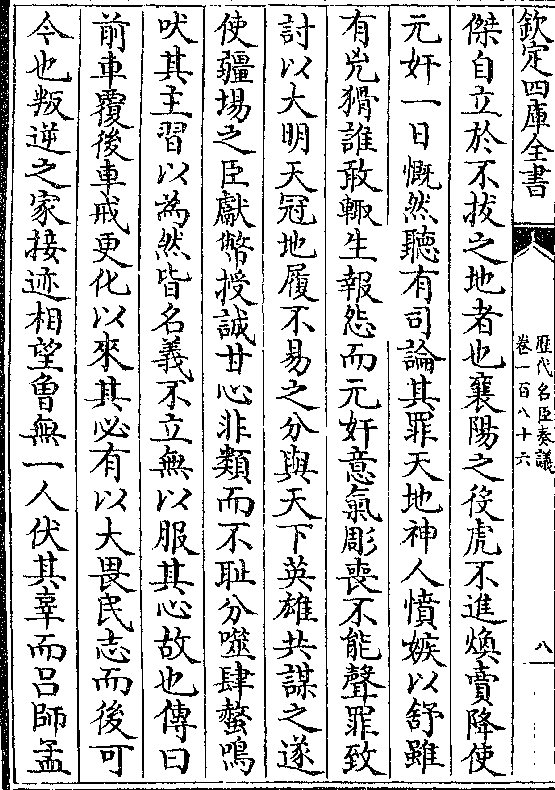 欽定四庫全書
歷代名臣奏議
卷一百八十六
八
傑自立於不拔之地者也襄陽之役虎不進煥賣降使
元奸一日慨然聽有司論其罪天地神人憤嫉以舒雖
有兇猾誰敢輙生報怨而元奸意氣彫喪不能聲罪致
討以大明天冠地履不易之分與天下英雄共謀之遂
使疆埸之臣獻幣授誠甘心非類而不耻分噬肆螫鳴
吠其主習以為然皆名義不立無以服其心故也傳曰
前車覆後車戒更化以來其必有以大畏民志而後可
今也叛逆之家接迹相望魯無一人伏其辜而吕師孟